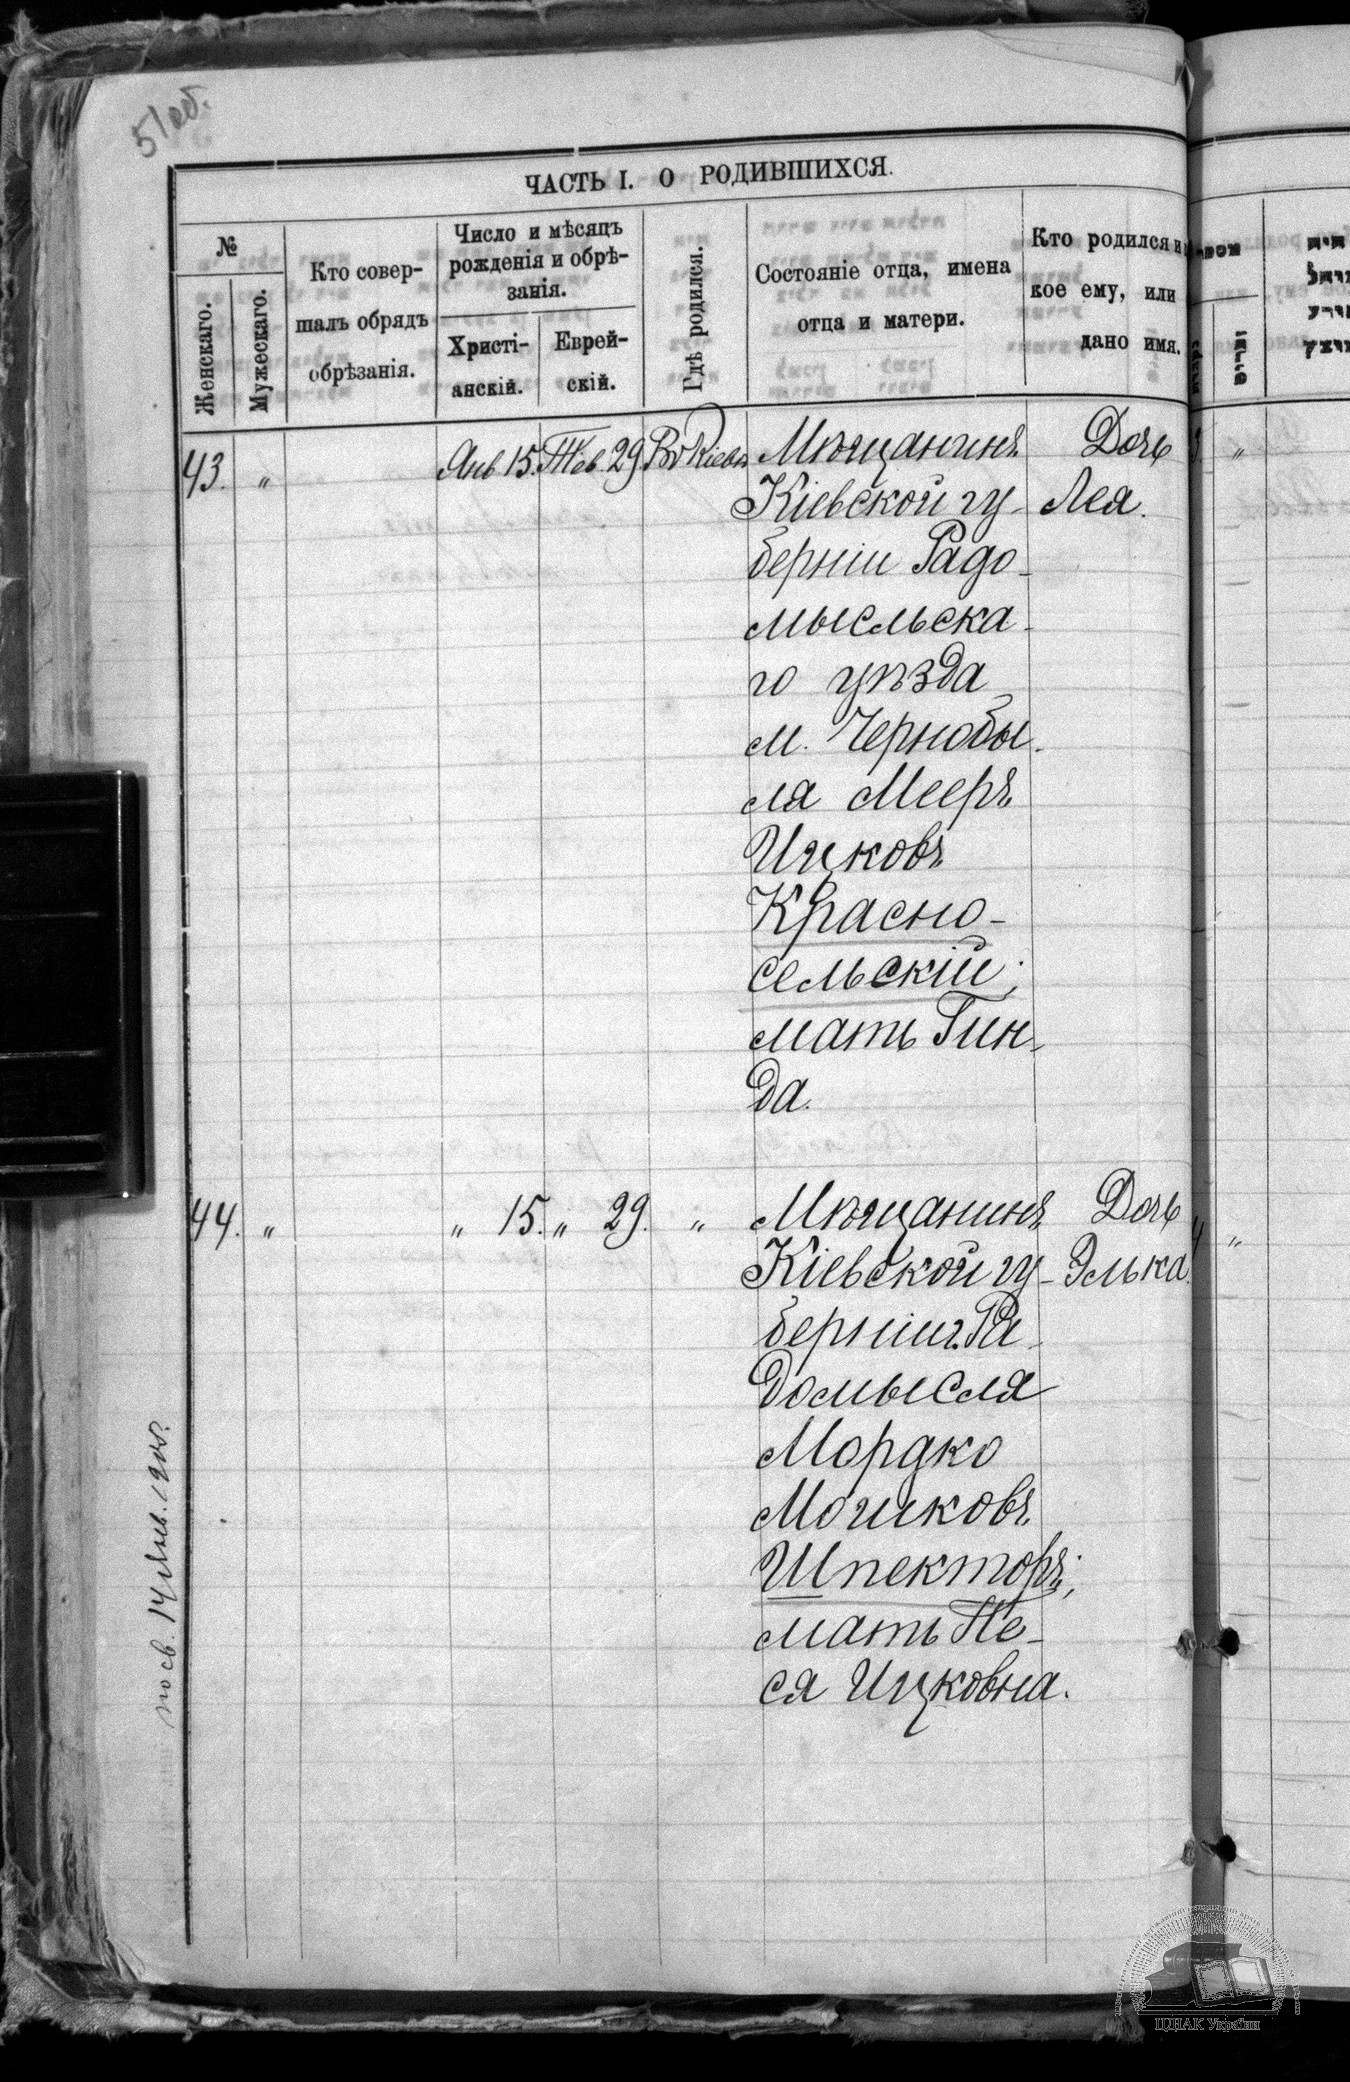 51 об.
ЧАСТЬ I. О РОДИВШИХСЯ.
№
Женскаго.
Мужескаго.
Кто совер-
шалъ обрядъ
обрѣзанія.
Число и мѣсяцъ
рожденія и обрѣ-
занія.
Христі-
анскій.
Еврей-
скій.
Гдѣ родился.
Состояніе отца, имена
отца и матери.
Кто родился и
кое ему, или
дано имя.
43. „ Янв 15. Тев. 29 Въ Кіевѣ Мѣщанинъ Дочь
Кіевской гу- Лея.
берніи Радо-
мысльска-
го уѣзда
м. Чернобы-
ля Мееръ
Ицковъ
Красно-
сельскій;
мать Гин-
да.
44. „ „ 15. „ 29. „ Мѣщанинъ Дочь
Кіевской гу- Элька.
берніи г. Ра-
домысля
Мордко
Мошковъ
Шпекторъ;
мать Пе-
ся Ицковна.
ЦДІАК України